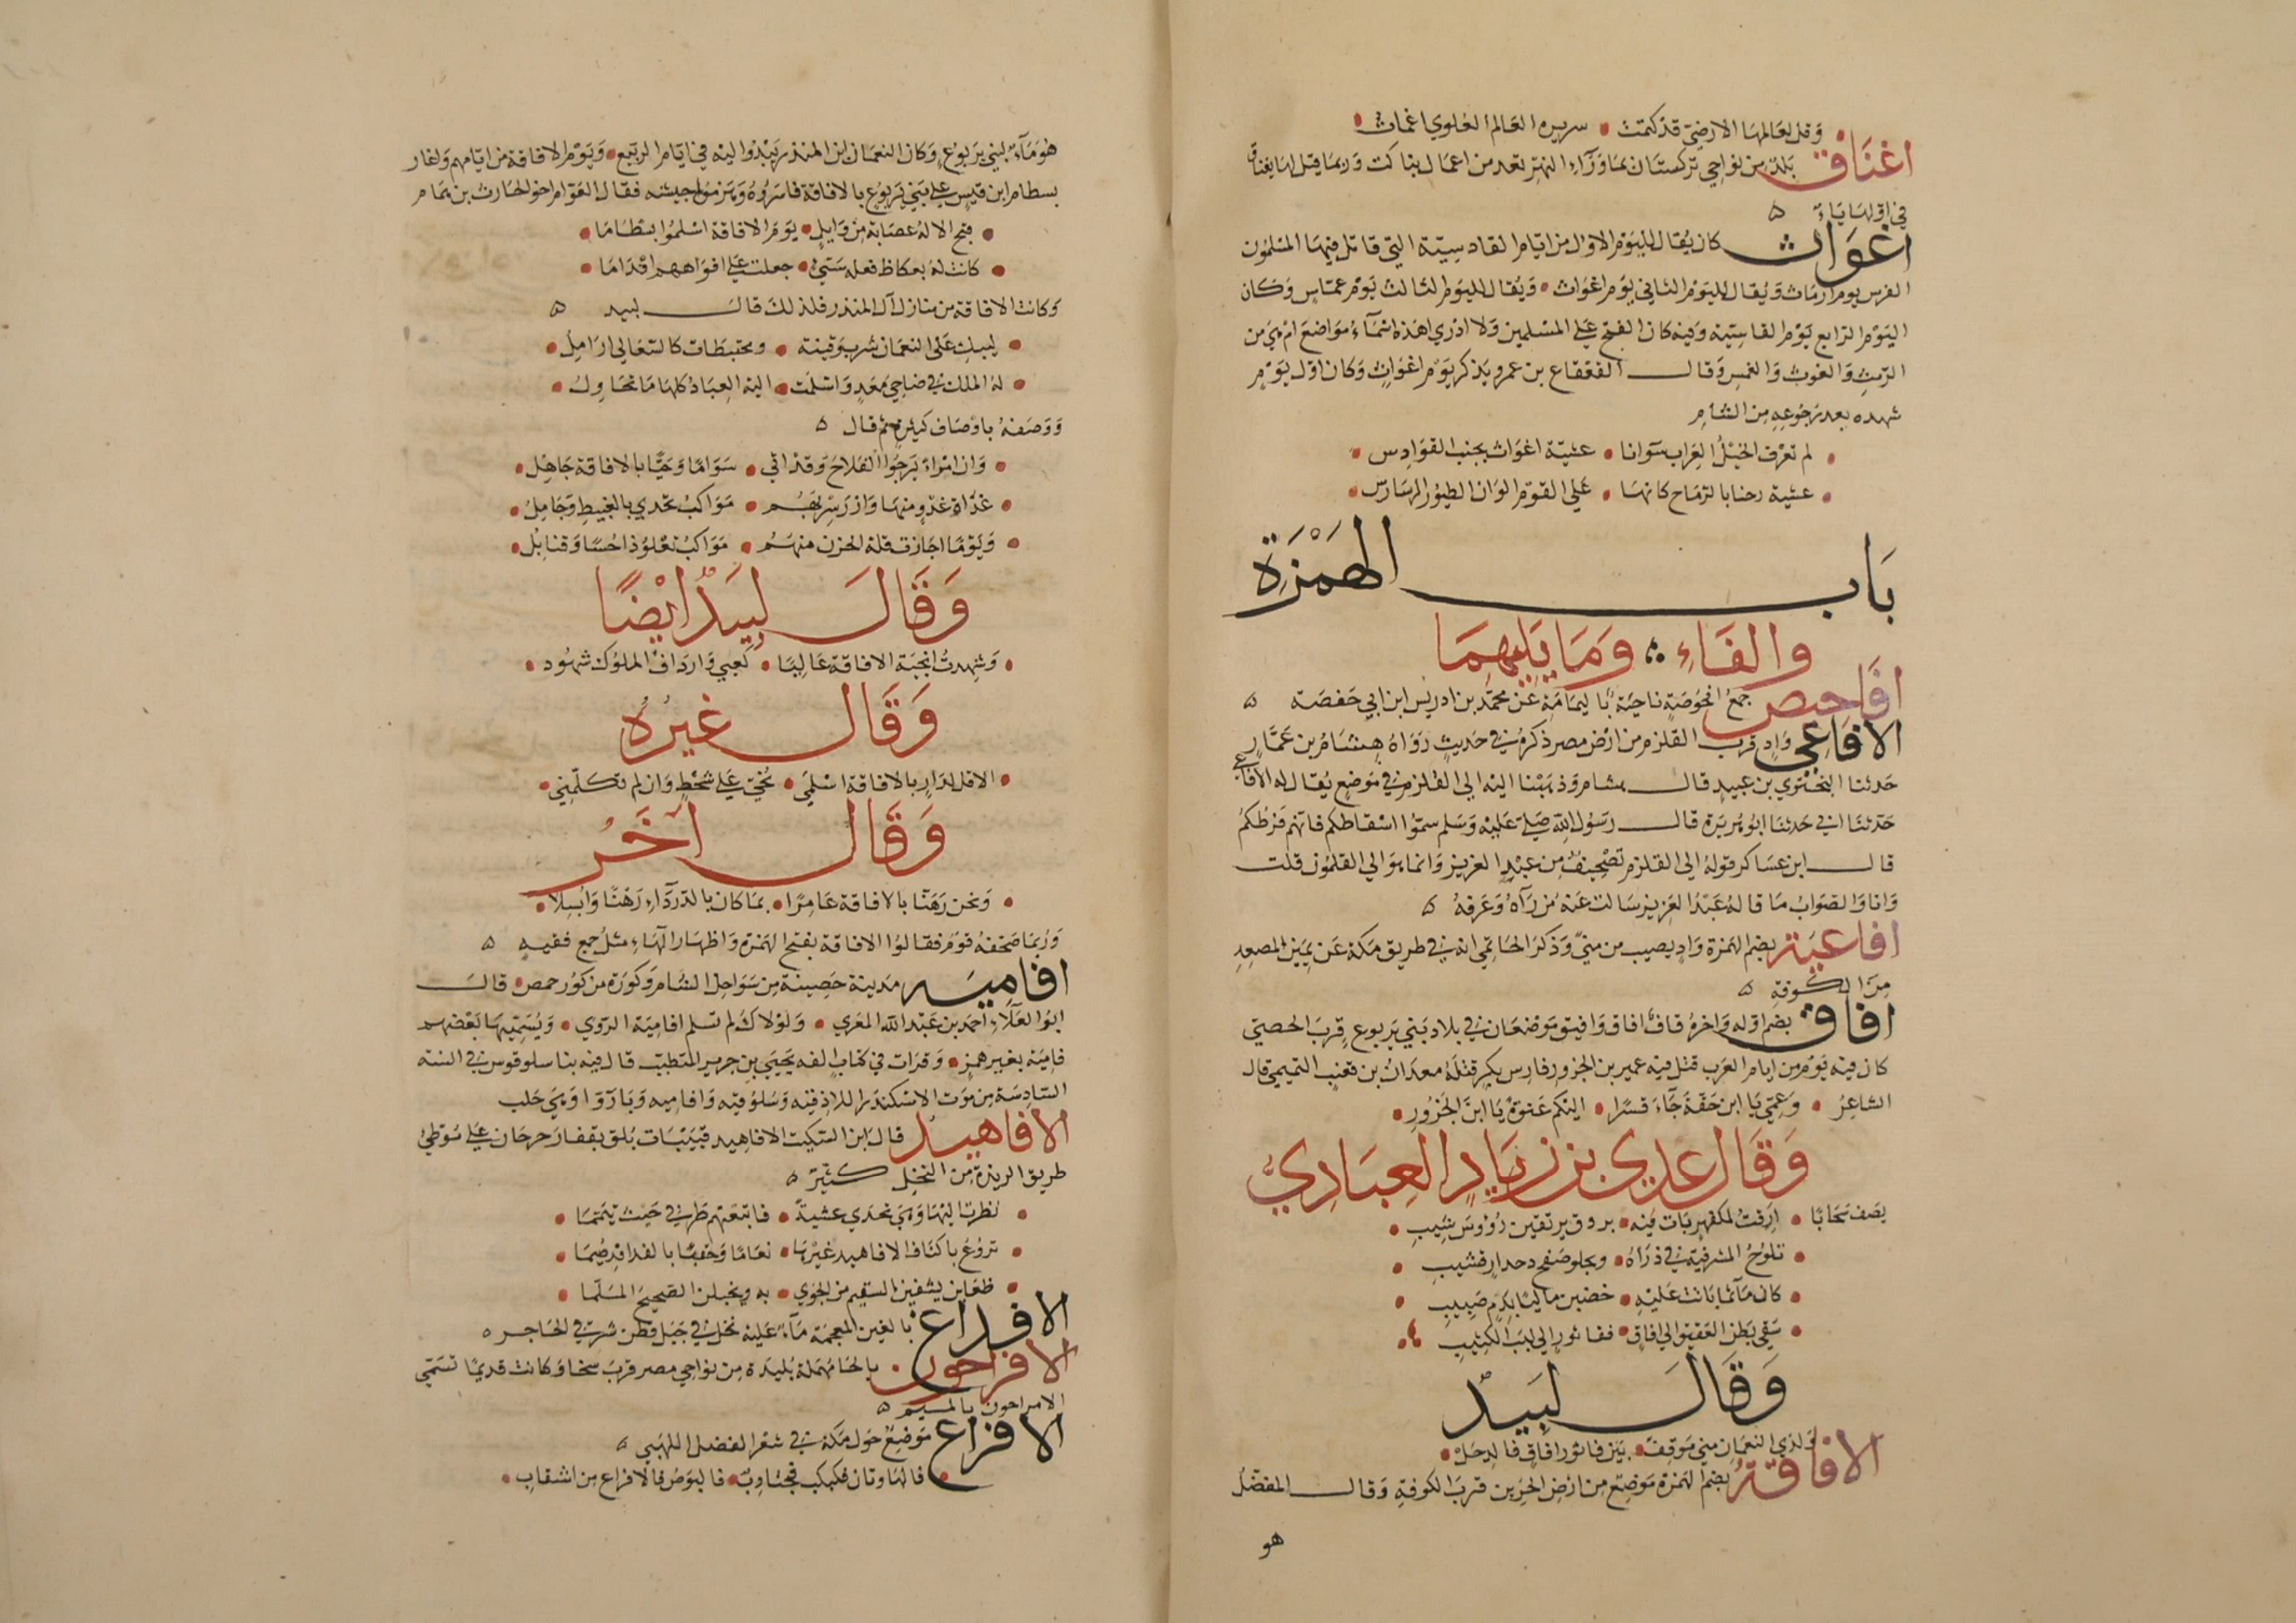 وقل لعالمها الارضي قد كتمت سريره العالم العلوي اغمات
اغناق بلد من نواحي تركستان بما وراء النهر تعد من اعمال بناكت وربما قيل لها يغناق
في اولها ياء
اغواث كان يقال لليوم الاول من ايام القادسية التي قاتل فيها المسلمون
الفرس يوم ارماث ويقال لليوم الثاني يوم اغواث ويقال لليوم الثالث يوم عماس وكان
اليوم الرابع يوم القادسية وفيه كان الفتح على المسلمين ولا ادري اهذه اسماء مواضع ام هي من
الرمث والغوث والغمس وقال القعقاع بن عمرو يذكر يوم اغواث وكان اول يوم
شهده بعد رجوعه من الشام
لم تعرف الخيل العراب سوانا عشية اغواث بجنب القوادس
عشية رحنا بالرماح كانها على القوم الوان الطيور الرسارس
باب الهمزة
والفاء وما يليهما
افاحيص جمع افحوصة ناحية باليمامة عن محمد بن ادريس ابن ابي حفصة
الافاعي واد قرب القلزم من ارض مصر ذكره في حديث رواه هشام بن عمار
حدثنا البختري بن عبيد قال هشام وذهبنا اليه الى القلزم في موضع يقال له الافاعي
حدثنا ابي حدثنا ابو هريرة قال رسول الله صلى عليه وسلم سموا اسقاطكم فانهم فرطكم
قال ابن عساكر قوله الى القلزم تصحيف من عبد العزيز وانما هو الى القلمون قلت
وانا والصواب ما قاله عبد العزيز سالت عنه من رآه وعرفه
افاعية بضم الهمزة واد يصيب من منى وذكر الحاتمي انه في طريق مكة عن يمين المصعد
من الكوفة
افاق بضم اوله واخره قاف افاق وافيق موضعان في بلاد بني يربوع قرب الحصي
كان فيه يوم من ايام العرب قتل فيه عمير بن الجزور فارس بكر قتله معدان بن قعنب التميمي قال
الشاعر وعمي يا ابن حقة جاء قسرا اليكم عنوة يا ابن الجزور
وقال عدي بن زياد العبادي
يصف سحابا ارقت لمكفهر بات فيه بروق يرتقين رؤوس شيب
تلوح المشرفية في ذراه ويجلو صفح دحدار قشيب
كان مآتما باتت عليه خضبن ماليا بدم صبيب
سقى بطن العقيق الى افاق ففاثور الى لبب الكثيب
وقال لبيد
ولدى النعمان مني موقف بين فاثور افاق فالدحل
الافاقة بضم الهمزة موضع من ارض الحزين قرب الكوفة وقال المفضل
هو
هو ماء لبني يربوع وكان النعمان ابن المنذر يبدوا اليه في ايام الربيع ويوم الافاقة من ايامهم ولغار
بسطام ابن قيس على بني يربوع بالافاقة فاسروه وهزموا جيشه فقال العوام اخو الحارث بن همام
قبح الاله عصابة من وايل يوم الافاقة اسلموا بسطاما
كانت له بعكاظ فعله سيئ جعلت على افواههم اقداما
وكانت الافاقة من منازل آل المنذر فلذلك قال لبيد
ليبك على النعمان شرب وقينة ومختبطات كالسعالي ارامل
له الملك في ضاحي معد واسلمت اليه العباد كلها ما تحاول
ووصفه باوصاف كثيرة ثم قال
وان امراء يرجوا الفلاح وقد اتى سواما وحيا بالافاقة جاهل
غداة غدو منها وازر سربهم مواكب تحدي بالغبيط وجامل
ويوما اجازت قلة الحزن منهم مواكب تعلو ذا حسا وقنابل
وقال لبيد ايضا
وشهدت انجية الافاقة عاليا كعبي وارداف الملوك شهود
وقال غيره
الا قل لدار بالافاقة اسلمي تحيي على شحط وان لم تكلمني
وقال اخر
ونحن رهنا بالافاقة عامرا بما كان بالدرداء رهنا وابسلا
وربما صحفه قوم فقالوا الافاقة بفتح الهمزه واظهار الهاء مثل جمع فقيه
افاميه مدينة حصينة من سواحل الشام وكورة من كور حمص قال
ابو العلاء احمد بن عبد الله المعري ولولاك لم تسلم افامية الردى ويسميها بعضهم
فامية بغير همز وقرات في كتاب الفه يحيى بن جرير المتطبب قال فيه بنا سلوقوس في السنة
السادسة من موت الاسكندر اللاذقية وسلوقية وافامية وباروا وهي حلب
الافاهيد قال ابن السكيت الافاهيد قنينات بلق بقفار حرجان على موطئ
طريق الربذة من النخل كثير
نظرت اليها وهي تحدى عشية فاتبعتهم طرفي حيث تيمما
تروع باكناف الافاهيد غيرها نعاما وحقبا بالفدافد صيما
ظعاين يشفين السقيم من الجوى به ويخبلن الصحيح المسلما
الافداغ بالغين المعجمة ماء عليه نخل في جبل قطن شرقي الحاجر
الافراحون بالحا مهملة بليدة من نواحي مصر قرب سخا وكانت قديما تسمى
الامراحون بالميم
الافراع موضع حول مكة في شعر الفضل اللهبي
فالهاوتان فكبكب فجتاوب فالبوص فالافراع من اشقاب